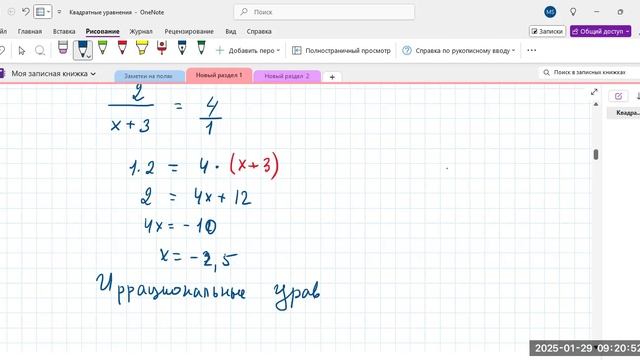 Квадратные уравнения - OneNote
Поиск
MS
Файл Главная Вставка Рисование Журнал Рецензирование Вид Справка
Записки
Общий доступ
Добавить перо
Полноэкранный просмотр
Справка по рукописному вводу
Моя записная книжка
Заметки на полях
Новый раздел 1
Новый раздел 2
+
Поиск в записных книжках
Квадра...
2 / (x + 3) = 4 / 1
1 · 2 = 4 · (x + 3)
2 = 4x + 12
4x = - 10
x = - 2,5
Иррациональные урав
2025-01-29 09:20:52